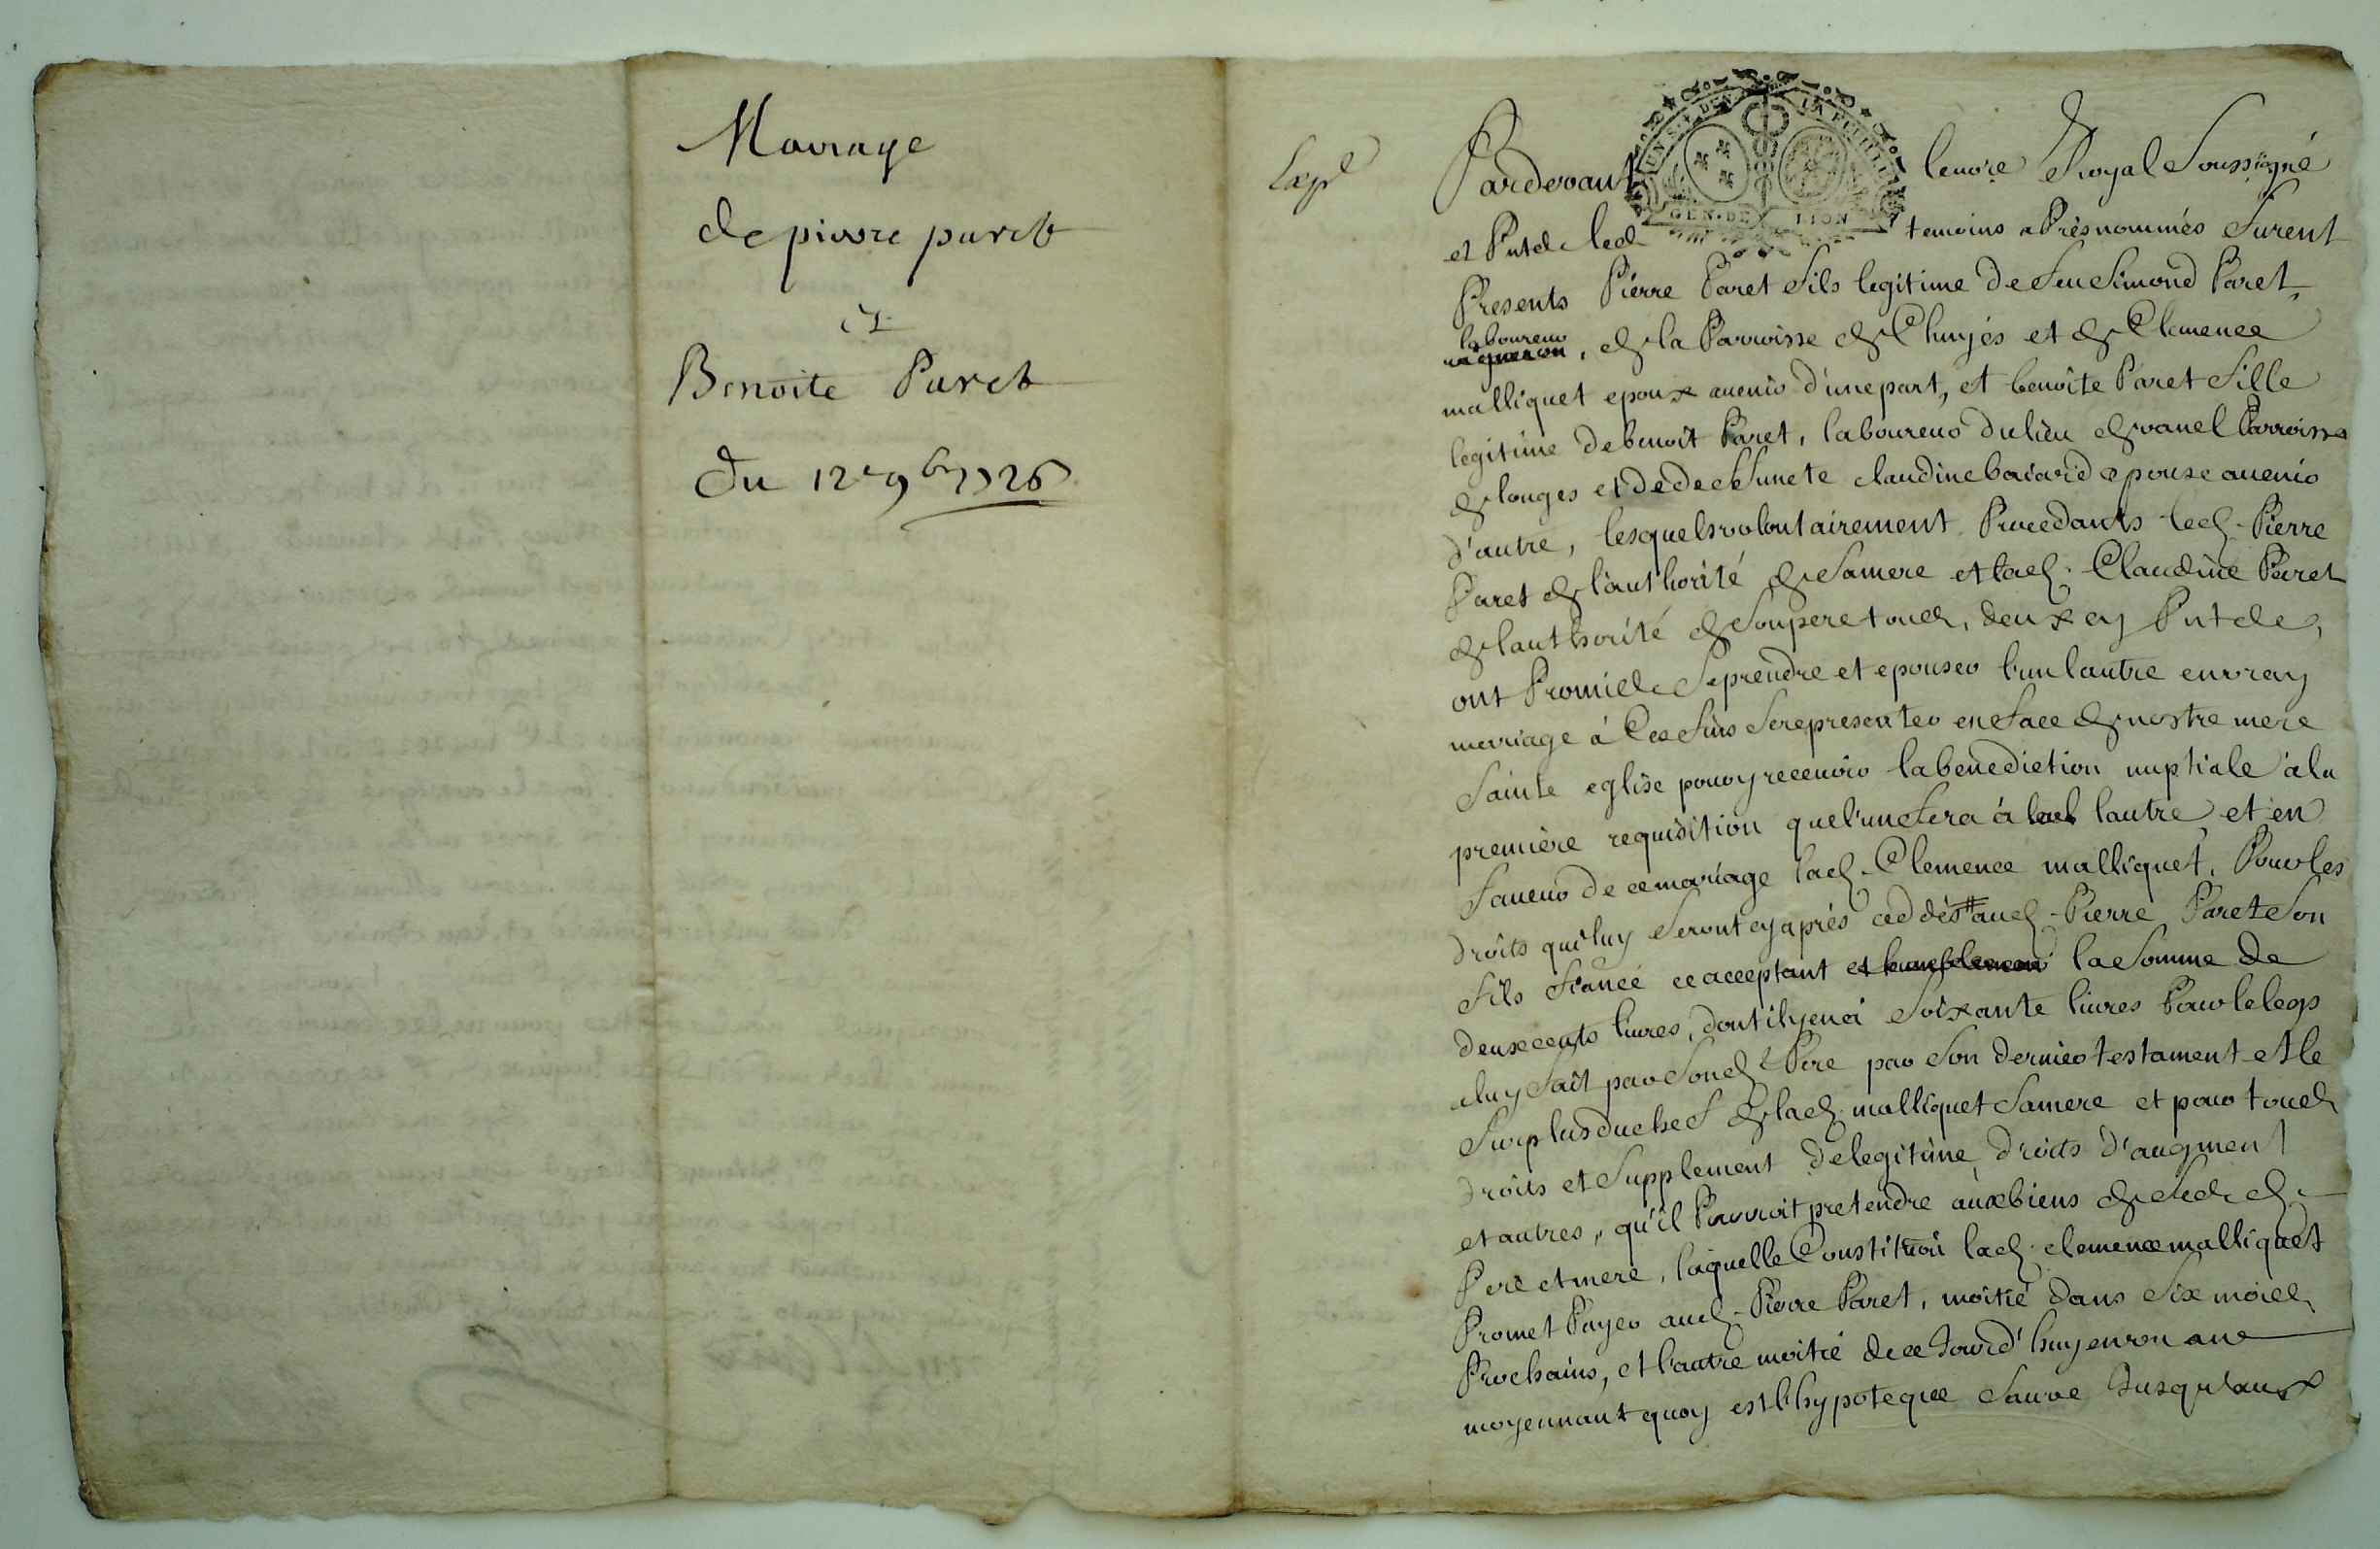 Mariage
de pierre paret
et
Benoite Paret
Du 12e 9bre 1726
Expé
Pardevant le nore Royal Soussigné
et Pnts les temoins aPrès nommés furent
Presents Pierre Paret fils legitime de feu Simond Paret,
laboureur
vigneron, de la Parroisse de Chuyés et de Clemence
malliquet epoux avenir d'une part, et benoite Paret fille
legitime de benoit Paret, laboureur du lieu de vanel Parroisse
de longes et de deffunete claudine baiard epouse avenir
d'autre, lesquels volontairement Procedants led. Pierre
Paret de l'authorité de sa mere et lad. Claudine Paret
de lauthorité de son pere tous deux cy Pnts,
ont Promis se prendre et epouser l'un lautre en vray
mariage à Ces fins se representer en face de nostre mere
Sainte eglise pour y recevoir la benediction nuptiale a la
première requisition que l'un fera à lautre et en
faveur de ce mariage lad. Clemence malliquet, Pour les
droits qui luy seront cy après ceddés aud. Pierre Paret son
fils fiancé ce acceptant la Somme de
deux cents livres, dont il y en a soixante livres Pour le legs
a luy fait par Son d. Pere par son dernier testament et le
Surplus du chef de lad. malliquet sa mere et pour tous
droits et Supplement de legitime, droits d'augment
et autres, qu'il Pourroit pretendre aux biens de sesd.
Pere et mere, laquelle Constitution lad. clemence malliquet
Promet Payer aud. Pierre Paret, moitié dans six mois
Prochains, et l'autre moitié de ce Jourd'huy en un an
moyennant quoy est l'hypoteque sauve Jusqu'aux
GEN. DE LION